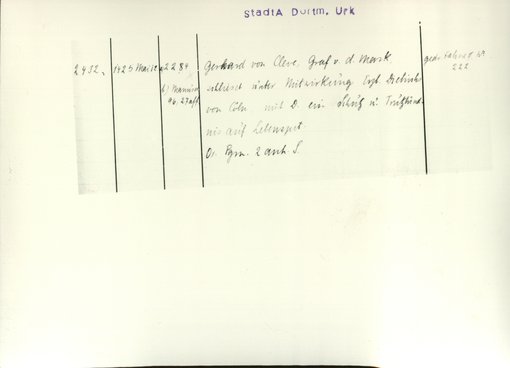 StadtA Dortm. Urk
2432. 1425 Mai 2284 Gerhard von Cleve, Graf v. d. Mark, gedr. Fahne
schliesst unter Mitwirkung Erzb. Dietrichs 222
von Cöln, mit D. ein Schutz u. Trutzbünd-
nis auf Lebenszeit.
Or. Pgm. 2 anh. S.